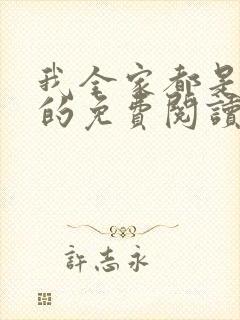 我全家都是
的免費閱讀
許志永